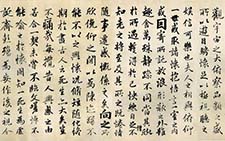 觀宇宙之大俯察品類之盛
所以遊目騁懷足以極視聽之
娛信可樂也夫人之相與俯仰
一世或取諸懷抱悟言一室之內
或因寄所託放浪形骸之外雖
趣舍萬殊靜躁不同當其欣
於所遇蹔得於己快然自足不
知老之將至及其所之既惓情
隨事遷感慨係之矣向之所
欣俛仰之閒以為陳迹猶不
能不以之興懷況脩短隨化終
期於盡古人云死生亦大矣豈
不痛哉每攬昔人興感之由
若合一契未嘗不臨文嗟悼不
能喻之於懷固知一死生為虛
誕齊彭殤為妄作後之視今